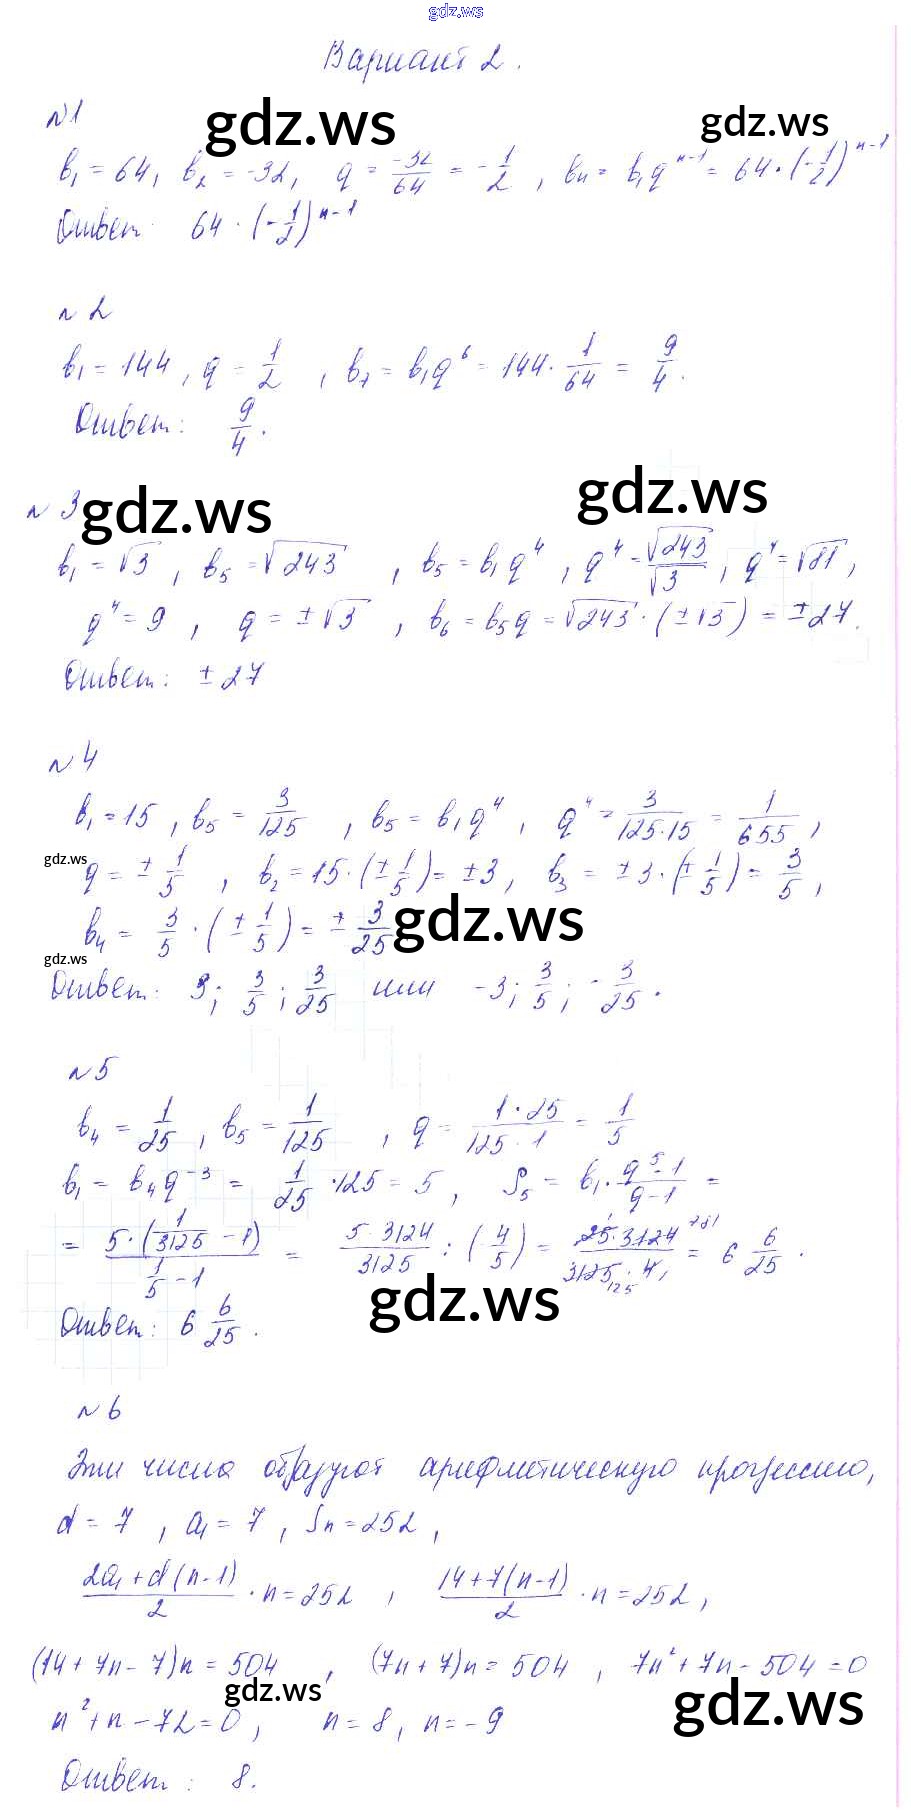 gdz.ws
Вариант 2.
№1
gdz.ws
gdz.ws
b₁ = 64, b₂ = -32, q = -32/64 = -1/2, bₙ = b₁qⁿ⁻¹ = 64·(-1/2)ⁿ⁻¹
Ответ: 64·(-1/2)ⁿ⁻¹
№2
b₁ = 144, q = 1/2, b₇ = b₁q⁶ = 144·1/64 = 9/4.
Ответ: 9/4.
№3
gdz.ws
gdz.ws
b₁ = √3, b₅ = √243, b₅ = b₁q⁴, q⁴ = √243/√3, q⁴ = √81,
q⁴ = 9, q = ±√3, b₆ = b₅q = √243·(±√3) = ±27.
Ответ: ±27
№4
b₁ = 15, b₅ = 3/125, b₅ = b₁q⁴, q⁴ = 3/(125·15) = 1/655,
gdz.ws
q = ±1/5, b₂ = 15·(±1/5) = ±3, b₃ = ±3·(±1/5) = 3/5,
b₄ = 3/5·(±1/5) = ±3/25
gdz.ws
gdz.ws
Ответ: 3; 3/5; 3/25 или -3; 3/5; -3/25.
№5
b₄ = 1/25, b₅ = 1/125, q = (1·25)/(125·1) = 1/5
b₁ = b₄q⁻³ = 1/25·125 = 5, S₅ = b₁·(q⁵-1)/(q-1) =
= 5·(1/3125 - 1)/(1/5 - 1) = (5·3124)/3125 : (4/5) = (25·3124 781)/(3125·4 125) = 6 6/25.
gdz.ws
Ответ: 6 6/25.
№6
Эти числа образуют арифметическую прогрессию,
d = 7, a₁ = 7, Sₙ = 252,
(2a₁+d(n-1))/2 · n = 252, (14+7(n-1))/2 · n = 252,
(14+7n-7)n = 504, (7n+7)n = 504, 7n²+7n-504 = 0
gdz.ws
gdz.ws
n²+n-72=0, n = 8, n = -9
Ответ: 8.